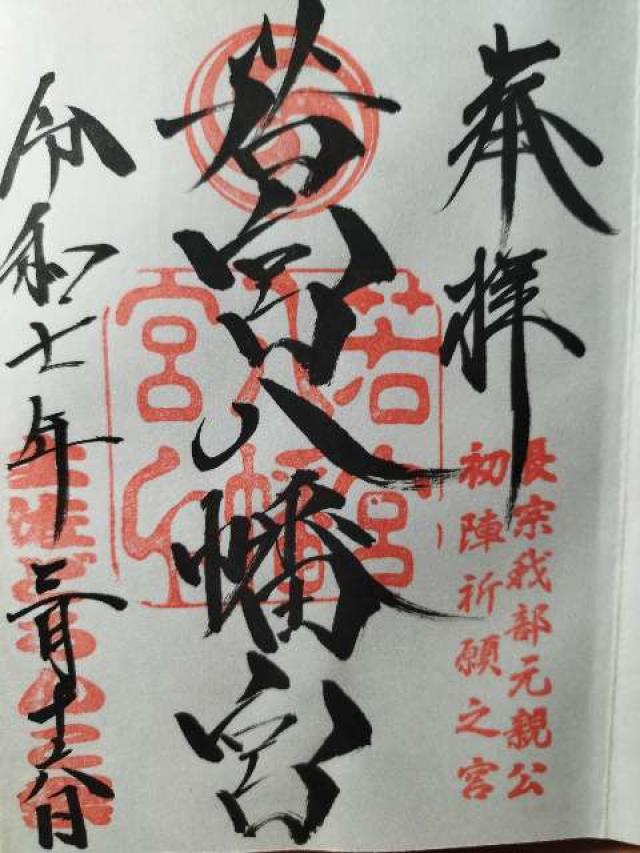 奉拝
長宗我部元親公
初陣祈願之宮
若宮八幡宮
若宮
八幡
宮印
令和七年二月十六日